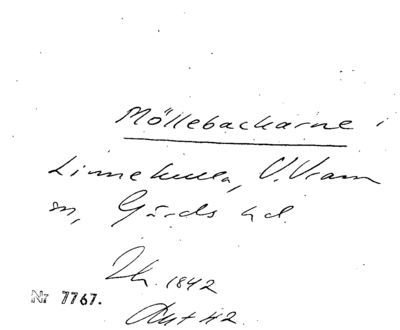 Möllebackarne i
Linnekulla, V. Vram
sn, Gärds hd.
Sk. 1842
Nr 7767.
Akt 42